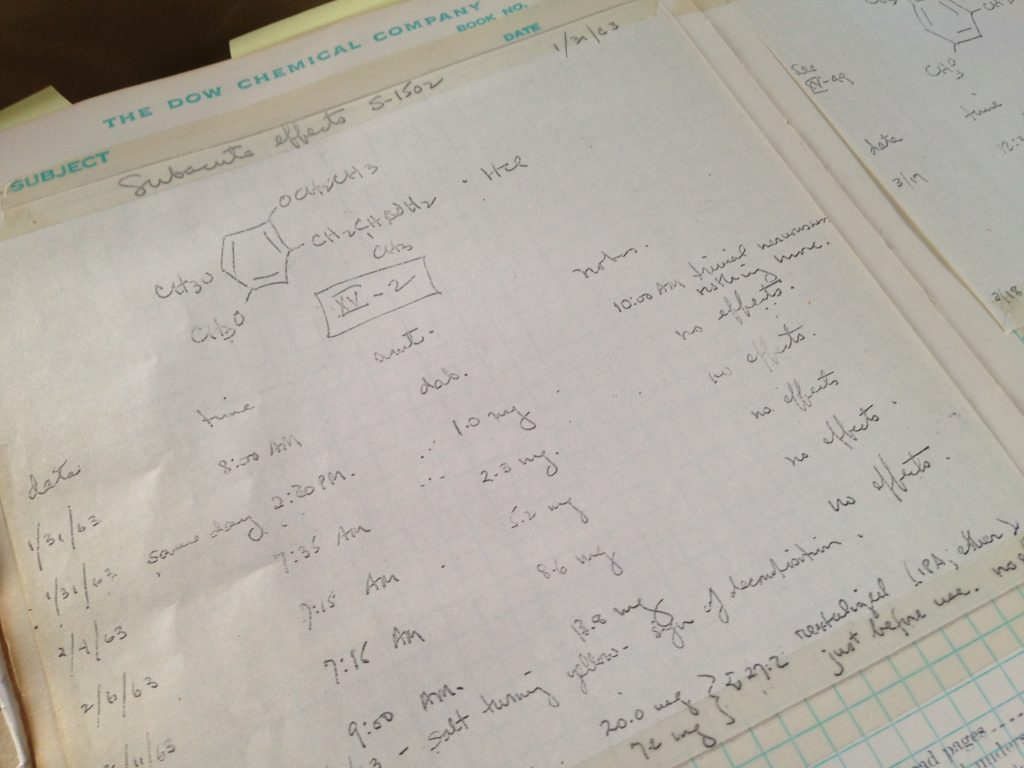 THE DOW CHEMICAL COMPANY
BOOK NO.
SUBJECT
DATE
Subacute effects S-1502
1/31/63
OCH2CH3
CH2CHNH2 · HCl
CH3
CH3O
CH3O
XV-2
amt.
date
time
dab.
notes.
1/31/63 8:00 AM 1.0 mg 10:00 AM trivial nervousness nothing more.
1/31/63 same day 2:30 PM. 2.3 mg. no effects.
2/4/63 7:35 AM 5.2 mg no effects.
2/6/63 7:15 AM 8.6 mg no effects
7:16 AM 13.8 mg no effects.
9:00 AM. no effects.
- salt turning yellow - sign of decomposition.
20.0 mg
72 mg
27.2
recrystallized (IPA, ether)
just before use.
See
XV-49
CH3O
date
time
3/17
3/18
pages